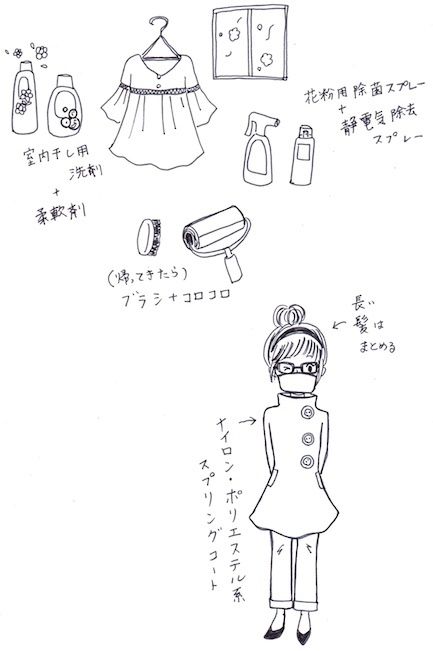 室内干し用
洗剤
+
柔軟剤
花粉用除菌スプレー
+
静電気除去
スプレー
(帰ってきたら)
ブラシ+コロコロ
長い
髪は
まとめる
ナイロン・ポリエステル系
スプリングコート